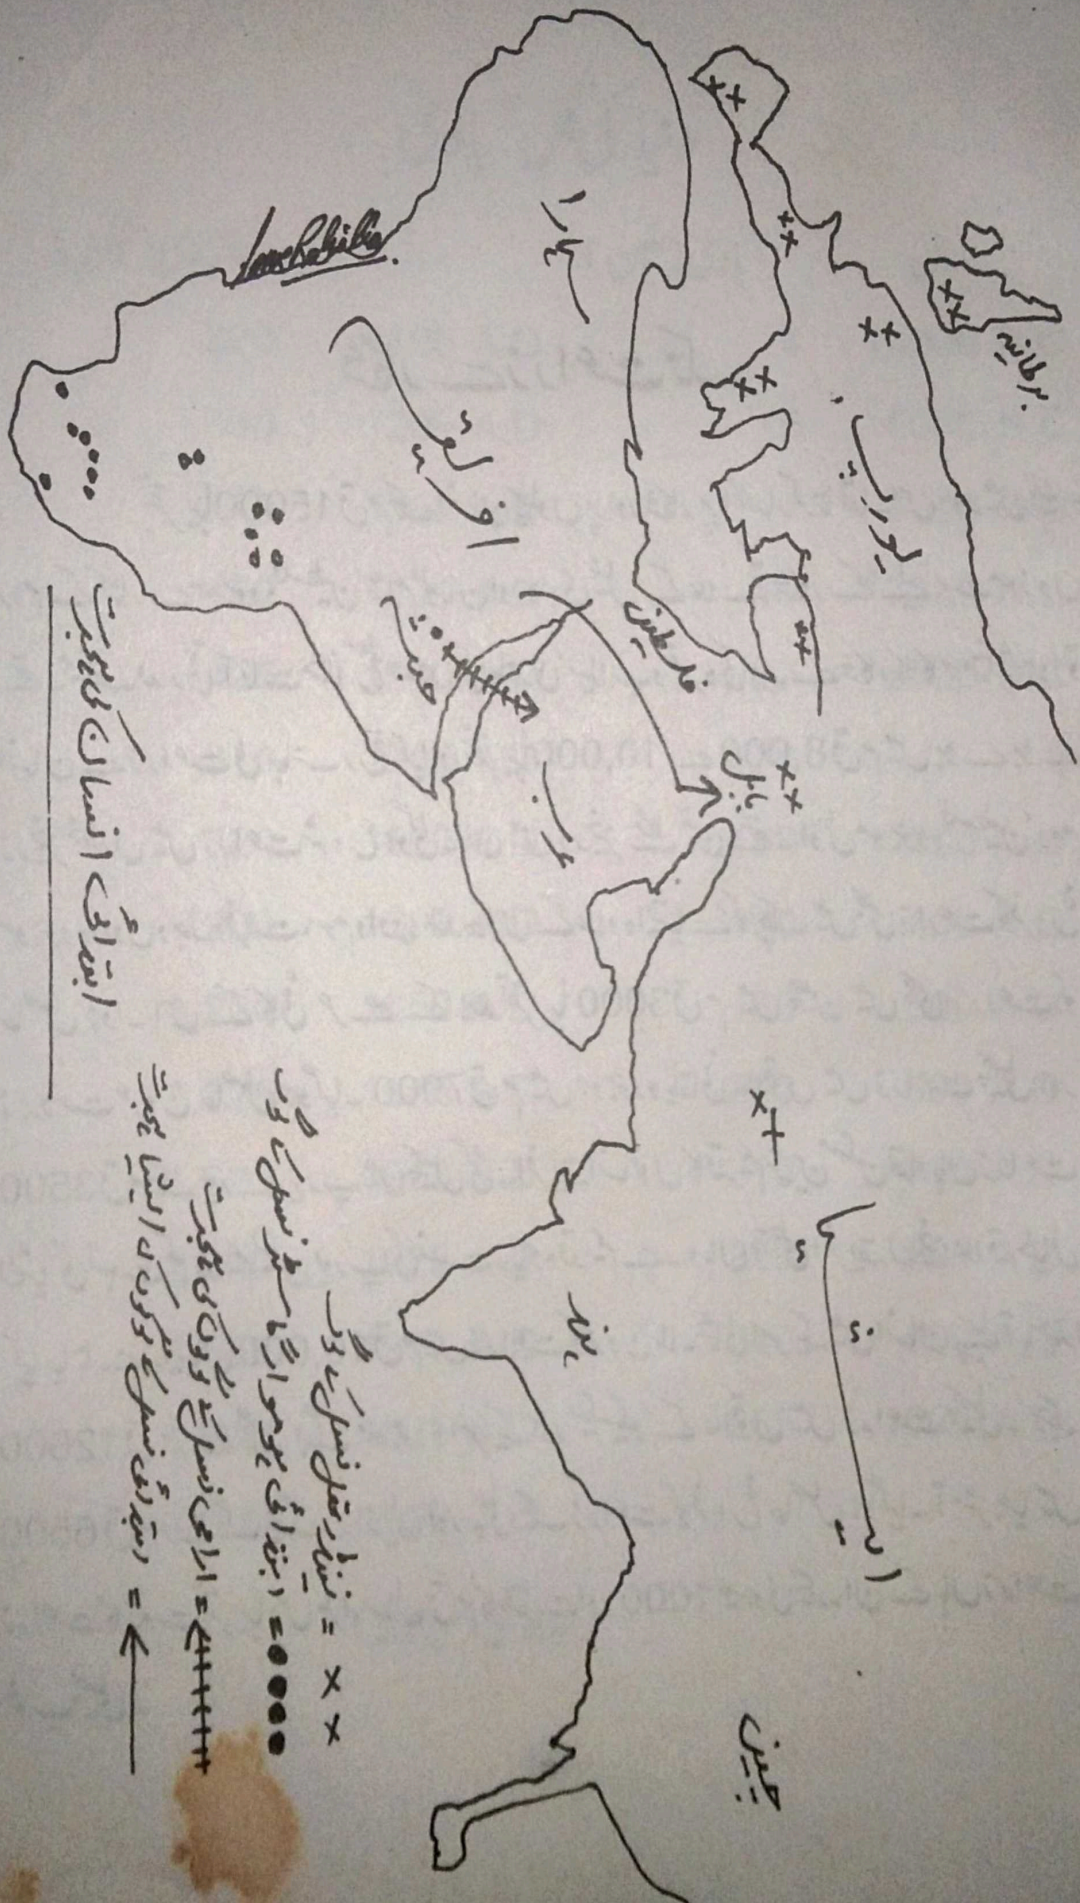 برطانیہ
یورپ
سہارا
افریقہ
فلسطین
بابل
حبشہ
عرب
ایشیا
ہند
چین
ابتدائی انسان کی ہجرت
×× = نینڈرتھل نسل کے لوگ
●●●● = ابتدائی ہومو
نسل کے لوگ
نسل کے لوگوں کی ہجرت
← = ابتدائی نسل کے لوگوں کی ایشیا ہجرت